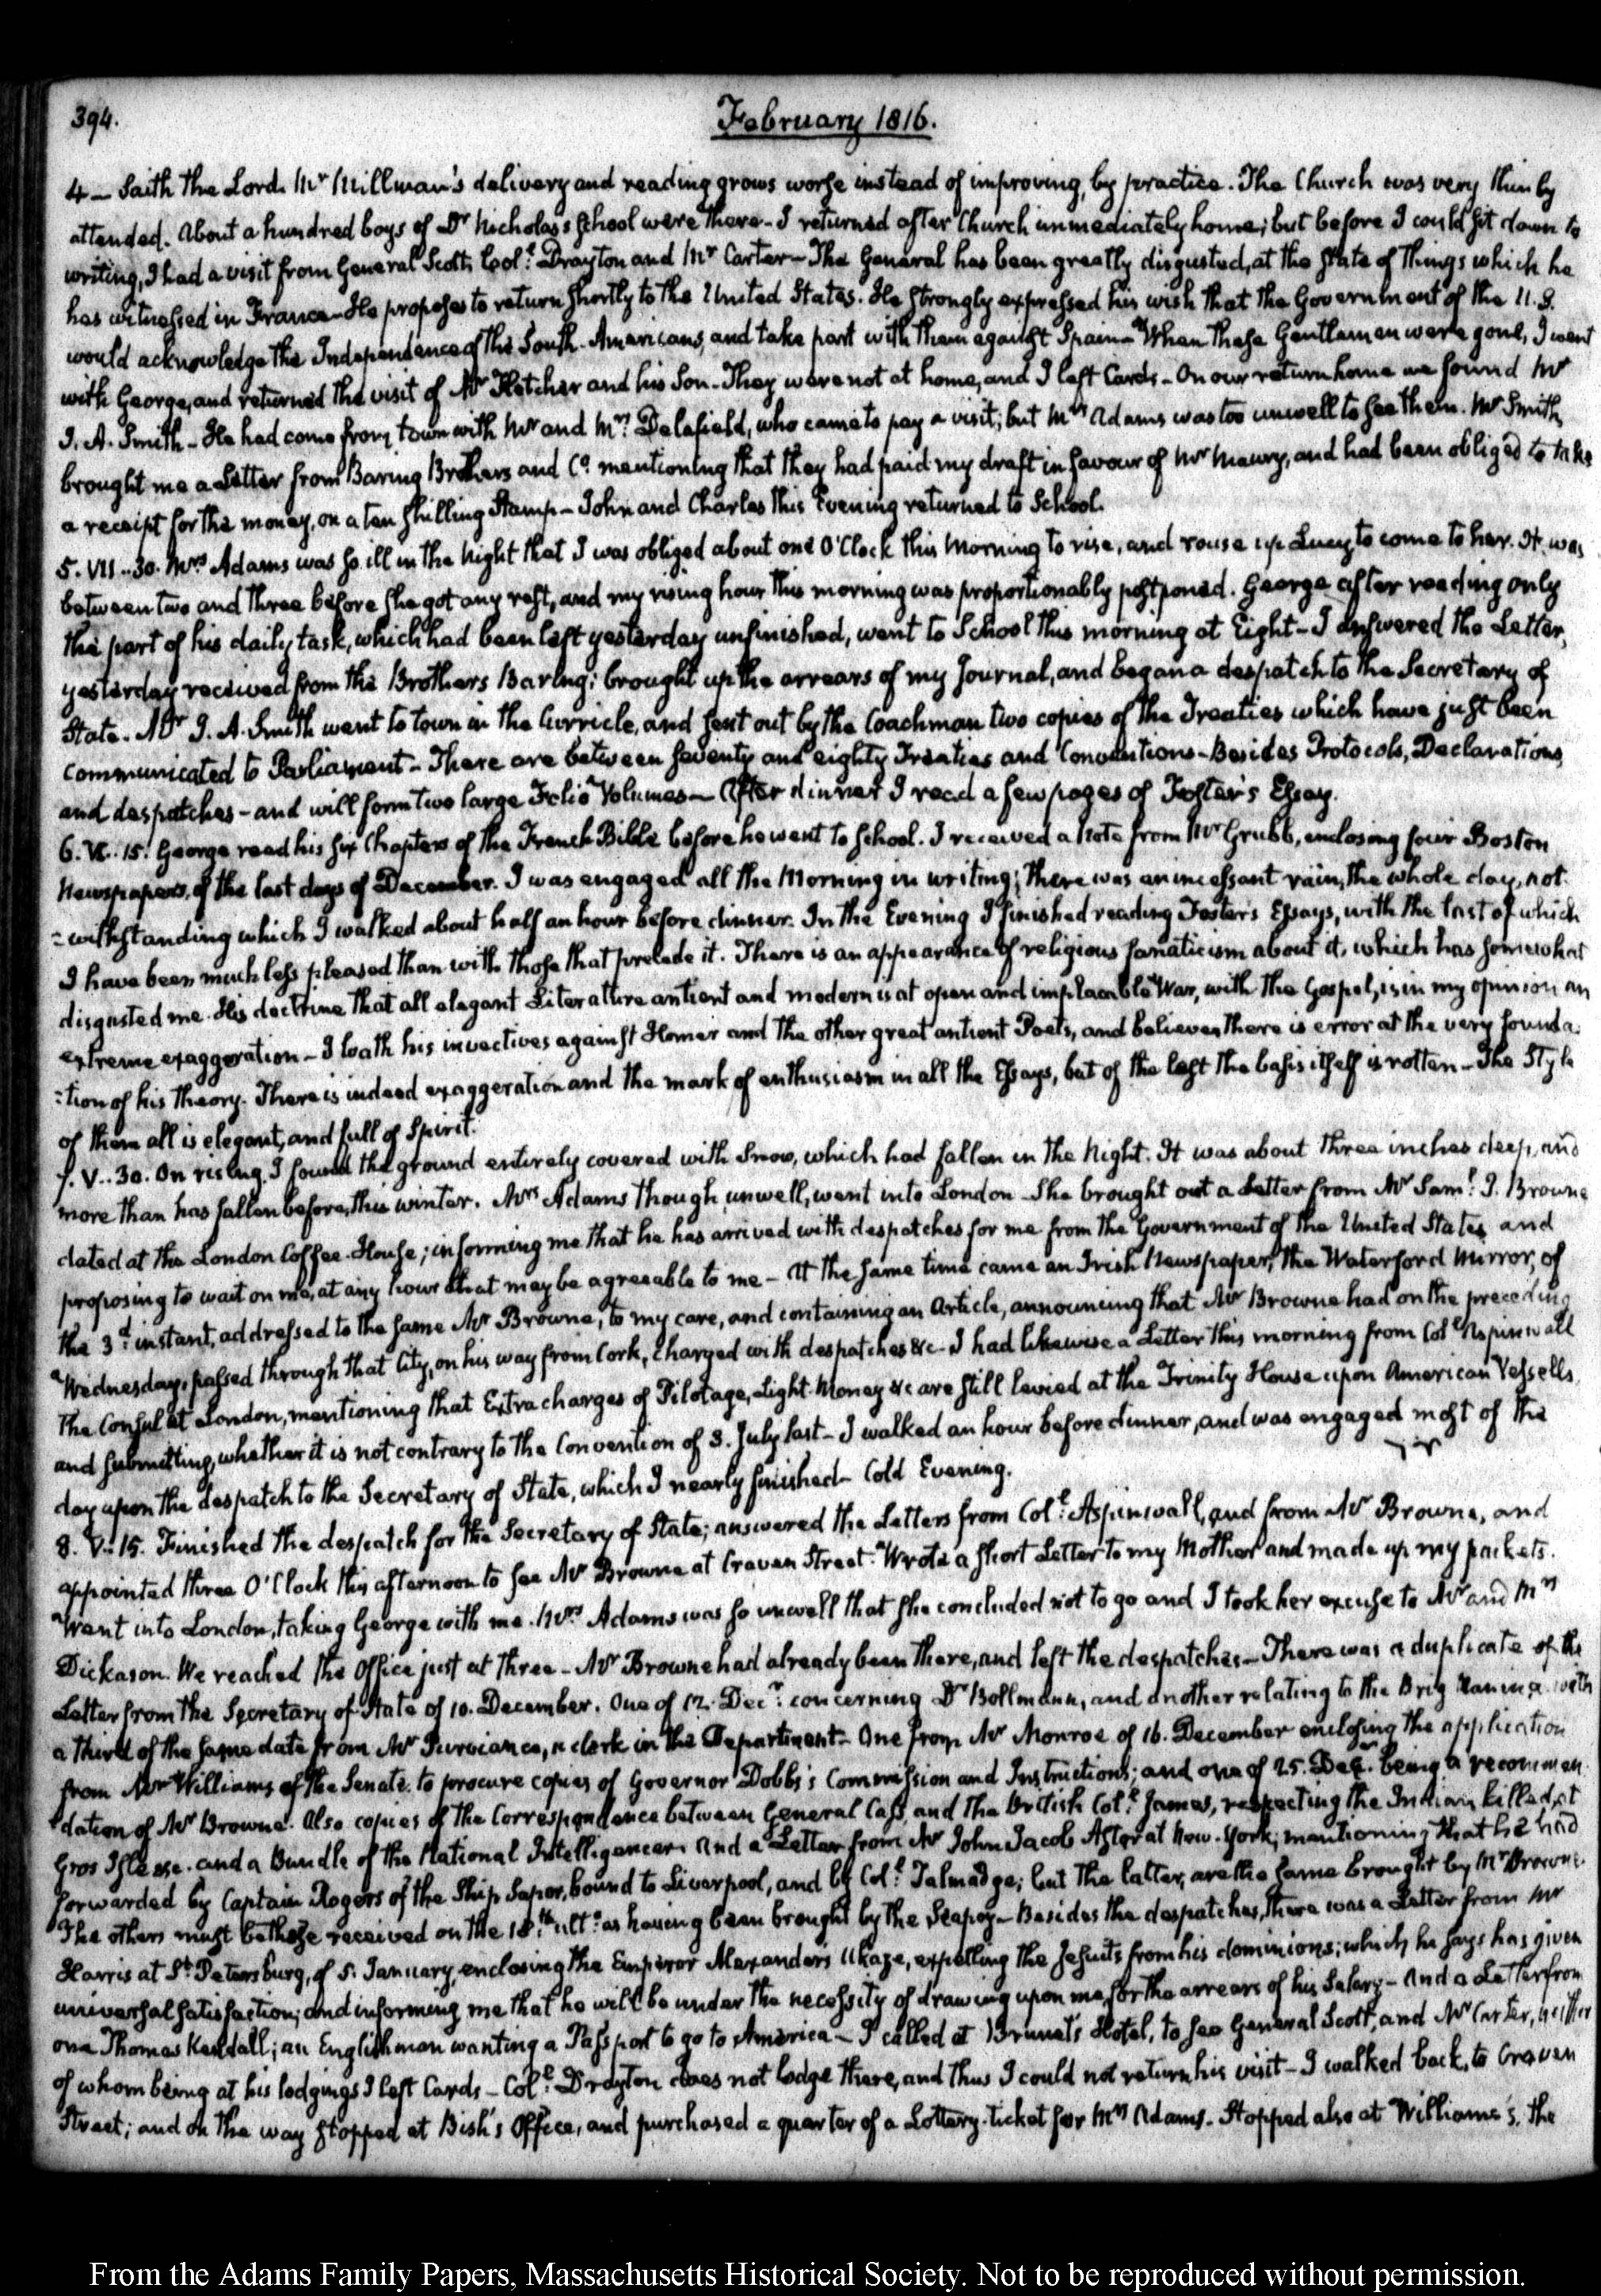 394.
February 1816.
4 — Saith the Lord. Mr Millman's delivery and reading grows worse instead of improving, by practice. The Church was very thinly
attended. About a hundred boys of Dr Nicholas's School were there — I returned after Church immediately home; but before I could sit down to
writing, I had a visit from General Scott, Colt. Drayton and Mr Carter — The General has been greatly disgusted, at the state of things which he
has witnessed in France — He proposes to return shortly to the United States. He strongly expressed his wish that the Government of the U.S.
would acknowledge the Independence of the South-Americans, and take part with them against Spain — When these Gentlemen were gone, I went
with George, and returned the visit of Mr Fletcher and his Son — They were not at home, and I left Cards — On our return home we found Mr
J. A. Smith — He had come from town with Mr and Mrs Delafield, who came to pay a visit; but Mrs Adams was too unwell to see them. Mr Smith
brought me a Letter from Baring Brothers and Co. mentioning that they had paid my draft in favour of Mr Maury, and had been obliged to take
a receipt for the money, on a ten shilling Stamp — John and Charles this Evening returned to School.
5. VII..30. Mrs Adams was so ill in the Night that I was obliged about one O'Clock this Morning to rise, and rouse up Lucy to come to her. It was
between two and three before she got any rest, and my rising hour this morning was proportionably postponed. George after reading only
the part of his daily task, which had been left yesterday unfinished, went to School this morning at Eight — I answered the Letter,
yesterday received from the Brothers Baring; brought up the arrears of my Journal, and began a despatch to the Secretary of
State. Mr J. A. Smith went to town in the Curricle, and sent out by the Coachman two copies of the Treaties which have just been
communicated to Parliament — There are between seventy and eighty Treaties and Conventions — Besides Protocols, Declarations,
and despatches — and will form two large Folio Volumes — After dinner I read a few pages of Foster's Essay.
6. VI..15. George read his six Chapters of the French Bible before he went to School. I received a Note from Mr Grubb, enclosing four Boston
Newspapers, of the last days of December. I was engaged all the Morning in writing; there was an incessant rain, the whole day, not-
=withstanding which I walked about half an hour before dinner. In the Evening I finished reading Foster's Essays, with the last of which
I have been much less pleased than with those that precede it. There is an appearance of religious fanaticism about it, which has somewhat
disgusted me. His doctrine that all elegant Literature antient and modern is at open and implacable War, with the Gospel, is in my opinion an
extreme exaggeration — I loath his invectives against Homer and the other great antient Poets, and believe there is error at the very founda-
:tion of his theory. There is indeed exaggeration and the mark of enthusiasm in all the Essays, but of the last the basis itself is rotten — The Style
of them all is elegant, and full of Spirit.
7. V..30. On rising, I found the ground entirely covered with Snow, which had fallen in the Night. It was about three inches deep, and
more than has fallen before, this winter. Mrs Adams though unwell, went into London. She brought out a Letter from Mr Saml. J. Browne
dated at the London Coffee-House; informing me that he has arrived with despatches for me from the Government of the United States, and
proposing to wait on me, at any hour that may be agreeable to me — At the same time came an Irish Newspaper, the Waterford Mirror, of
the 3d. instant, addressed to the same Mr Browne, to my care, and containing an Article, announcing that Mr Browne had on the preceding
Wednesday, passed through that City, on his way from Cork, charged with despatches &c — I had likewise a Letter this morning from Colt. Aspinwall
The Consul at London, mentioning that Extra charges of Pilotage, Light Money &c are still levied at the Trinity House upon American Vessells,
and submitting, whether it is not contrary to the Convention of 3. July last — I walked an hour before dinner, and was engaged most of the
day upon the despatch to the Secretary of State, which I nearly finished — Cold Evening.
8. V..15. Finished the despatch for the Secretary of State; answered the Letters from Colt. Aspinwall, and from Mr Browne, and
appointed three O'Clock this afternoon to see Mr Browne at Craven Street. Wrote a short Letter to my Mother and made up my packets.
Went into London, taking George with me. Mrs Adams was so unwell that she concluded not to go and I took her excuse to Mr and Mrs
Dickason. We reached the Office just at three — Mr Browne had already been there, and left the despatches — There was a duplicate of the
Letter from the Secretary of State of 10. December. One of 12. Decr. concerning Dr Bollmann, and another relating to the Brig Nanina with
a third of the same date from Mr Purviance, a clerk in the Department — One from Mr Monroe of 16. December enclosing the application
from Mr Williams of the Senate, to procure copies of Governor Dobbs's Commission and Instructions; and one of 25. Decr. being a recommen-
dation of Mr Browne. Also copies of the Correspondence between General Cass and the British Colt. James, respecting the Indian killed, at
Gros Isle &c. and a Bundle of the National Intelligencer. And a Letter from Mr John Jacob Astor at New-York, mentioning that he had
forwarded by Captain Rogers of the Ship Sapor, bound to Liverpool, and by Colt. Talmadge; but the latter, are the same brought by Mr Browne.
The others must be those received on the 18th. ulto. as having been brought by the Seapoy — Besides the despatches, there was a Letter from Mr
Harris at St. Petersburg, of 5. January, enclosing the Emperor Alexander's Ukaze, expelling the Jesuits from his dominions; which he says has given
universal satisfaction; and informing me that he will be under the necessity of drawing upon me for the arrears of his Salary — And a Letter from
one Thomas Kendall; an Englishman wanting a Passport to go to America — I called at Brunet's Hotel, to see General Scott, and Mr Carter, neither
of whom being at his lodgings I left Cards — Colt. Drayton does not lodge there, and thus I could not return his visit — I walked back, to Craven
Street; and on the way stopped at Bish's Office, and purchased a quarter of a Lottery-ticket for Mrs Adams. Stopped also at Williams's, the
From the Adams Family Papers, Massachusetts Historical Society. Not to be reproduced without permission.